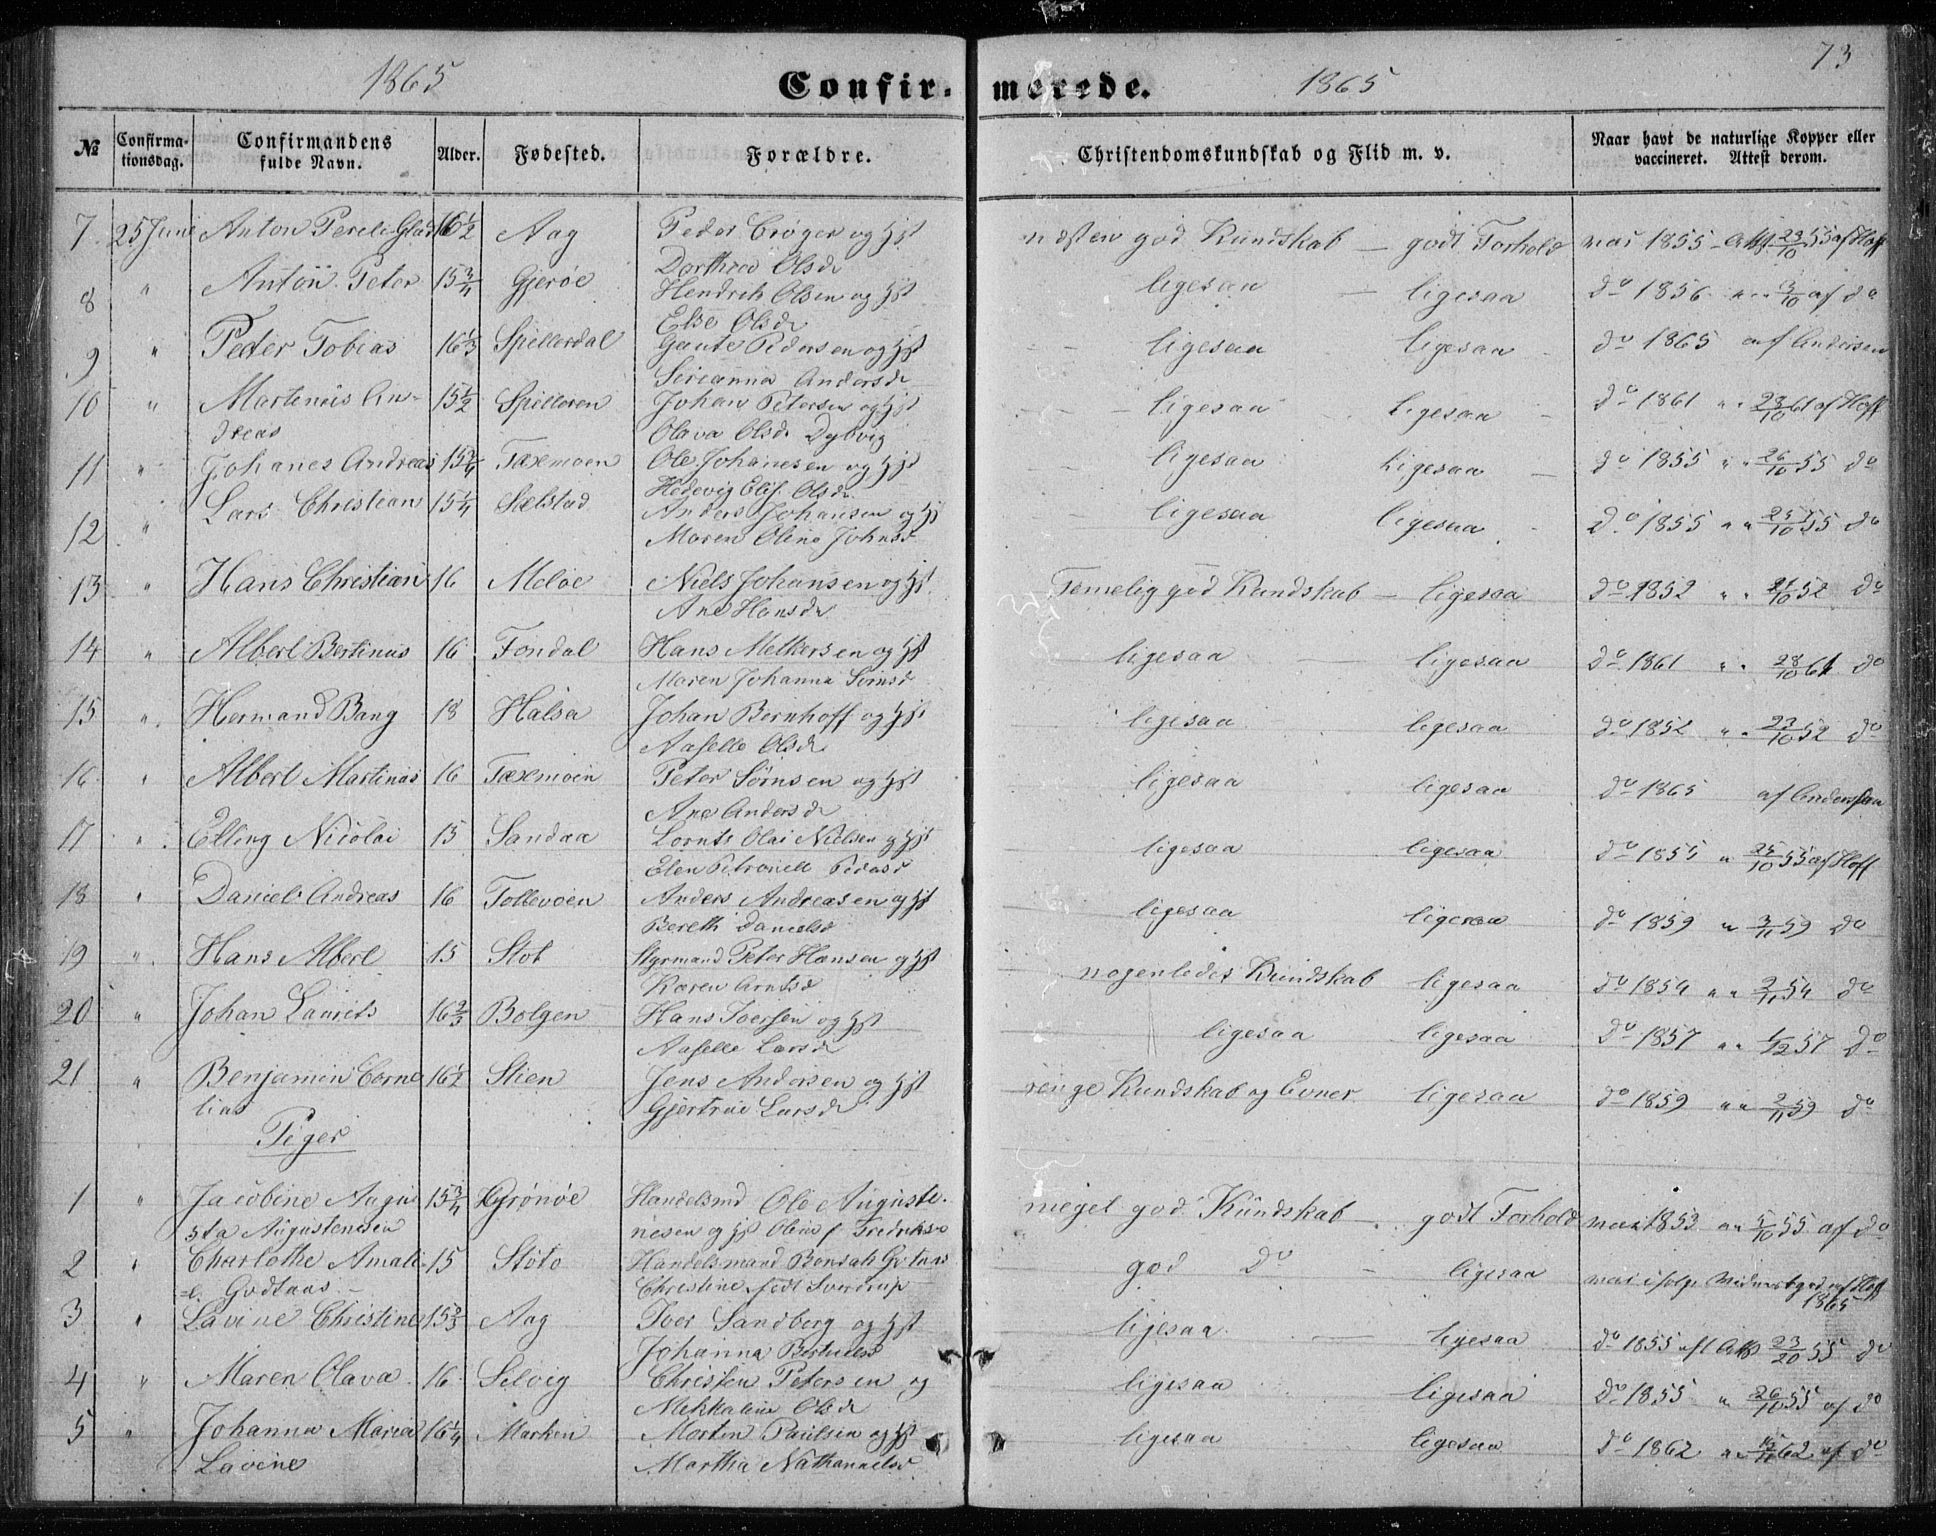 73
1865
Confirmerede.
1865
№
Confirmationsdag.
Confirmandens fulde Navn.
Alder.
Fødested.
Forældre.
Christendomskundskab og Flid m. v.
Naar havt de naturlige Kopper eller vaccineret. Attest derom.
7 25 June Anton 16 1/2 Aag Peder Crøger og Hst næsten god Kundskab — godt Forhold 1855 Att. 23/10 55 af Hoff
Dorthea Olsdr
8 " Anton Peter 15 3/4 Gjerøe Hendrik Olsen og Hst ligesaa — ligesaa do 1856 " " 3/10 af do
Else Olsdr
9 " Peder Tobias 16 1/3 Spilderdal Gaute Pedersen og Hst ligesaa ligesaa do 1865 af Andersen
Andersdr
10 " Martinus An- 15 1/2 Spilderen Johan Petersen og Hst ligesaa ligesaa do 1861 " " 23/10 61 af Hoff
dreas Olava Olsdr Dybvig
11 " Johanes Andreas 15 3/4 Ole Johanesen og Hst ligesaa ligesaa do 1855 " " 26/10 55 do
Hedevig Elis. Olsdr
12 " Lars Christian 15 1/4 Selstad Anders Johansen og Hst ligesaa ligesaa do 1855 " " 25/10 55 do
Maren Oline Johnsd
13 " Hans Christian 16 Meløe Niels Johansen og Hst Temelig god Kundskab — ligesaa do 1852 " " 21/10 52 do
Ane Hansdr
14 " Albert Bertinus 16 Fondal Hans Melkersen og Hst ligesaa — ligesaa do 1861 " " 28/10 61 do
Maren Johanna
15 " Hermand Bang 18 Halsa Johan Bernhoff og Hst ligesaa ligesaa do 1852 " " 23/10 52 do
Olsdr
16 " Albert Martinus 16 Peter Sørnsen og Hst ligesaa ligesaa do 1865 af Andersen
Ane Andersdr
17 " Elling Nicolai 15 Sandaa Lornts Olai Nielsen og Hst ligesaa ligesaa do 1855 " 25/10 55 af Hoff
Elen Petronelle Pedersd
18 " Daniel Andreas 16 Tollevoen Anders Andreasen og Hst ligesaa ligesaa do 1859 " 3/11 59 do
Bereth Danielsd
19 " Hans Albert 15 Stot Styrmand Peter Hansen og Hst nogenledes Kundskab ligesaa do 1854 " " 2/11 54 do
Karen Arntsd
20 " Johan Laurits 16 2/3 Bolgen Hans Iversen og Hst ligesaa ligesaa do 1857 " " 1/12 57 do
Larsdr
21 " Benjamin Corne 16 1/2 Stien Jens Andersen og Hst ringe Kundskab og Evner ligesaa do 1859 " " 2/11 59 do
lius Gjertrue Larsdr
Piger
1 " Jacobine Augu 15 3/4 Grønøe Handelsmd Ole Auguste- meget god Kundskab — godt Forhold 1853 " " 5/10 55 af do
sta Augustenesen nesen og Hst Oline f. Fredriksen
2 " Charlotte Amali 15 Støto Handelsmand god do — ligesaa
e Godtaas Christine født Sverdrup 1865
3 " Lavine Christine 15 2/3 Aag Iver Sandberg og Hst ligesaa — ligesaa do 1855 Att 23/20 55 do
Johanna
4 " Maren Olava 16 Selvig Christen Petersen og ligesaa ligesaa do 1855 " 26/10 55 af do
Olsdr
5 " Johanna Maria 16 1/4 Marken Morten Paulsen og Hst ligesaa ligesaa do 1862 " " 62 af do
Lavine Martha Nathanaelsd